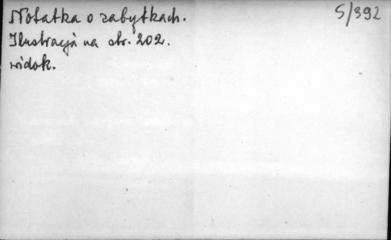 Notatka o zabytkach.
5/392
Ilustracja na str. 202.
widok.